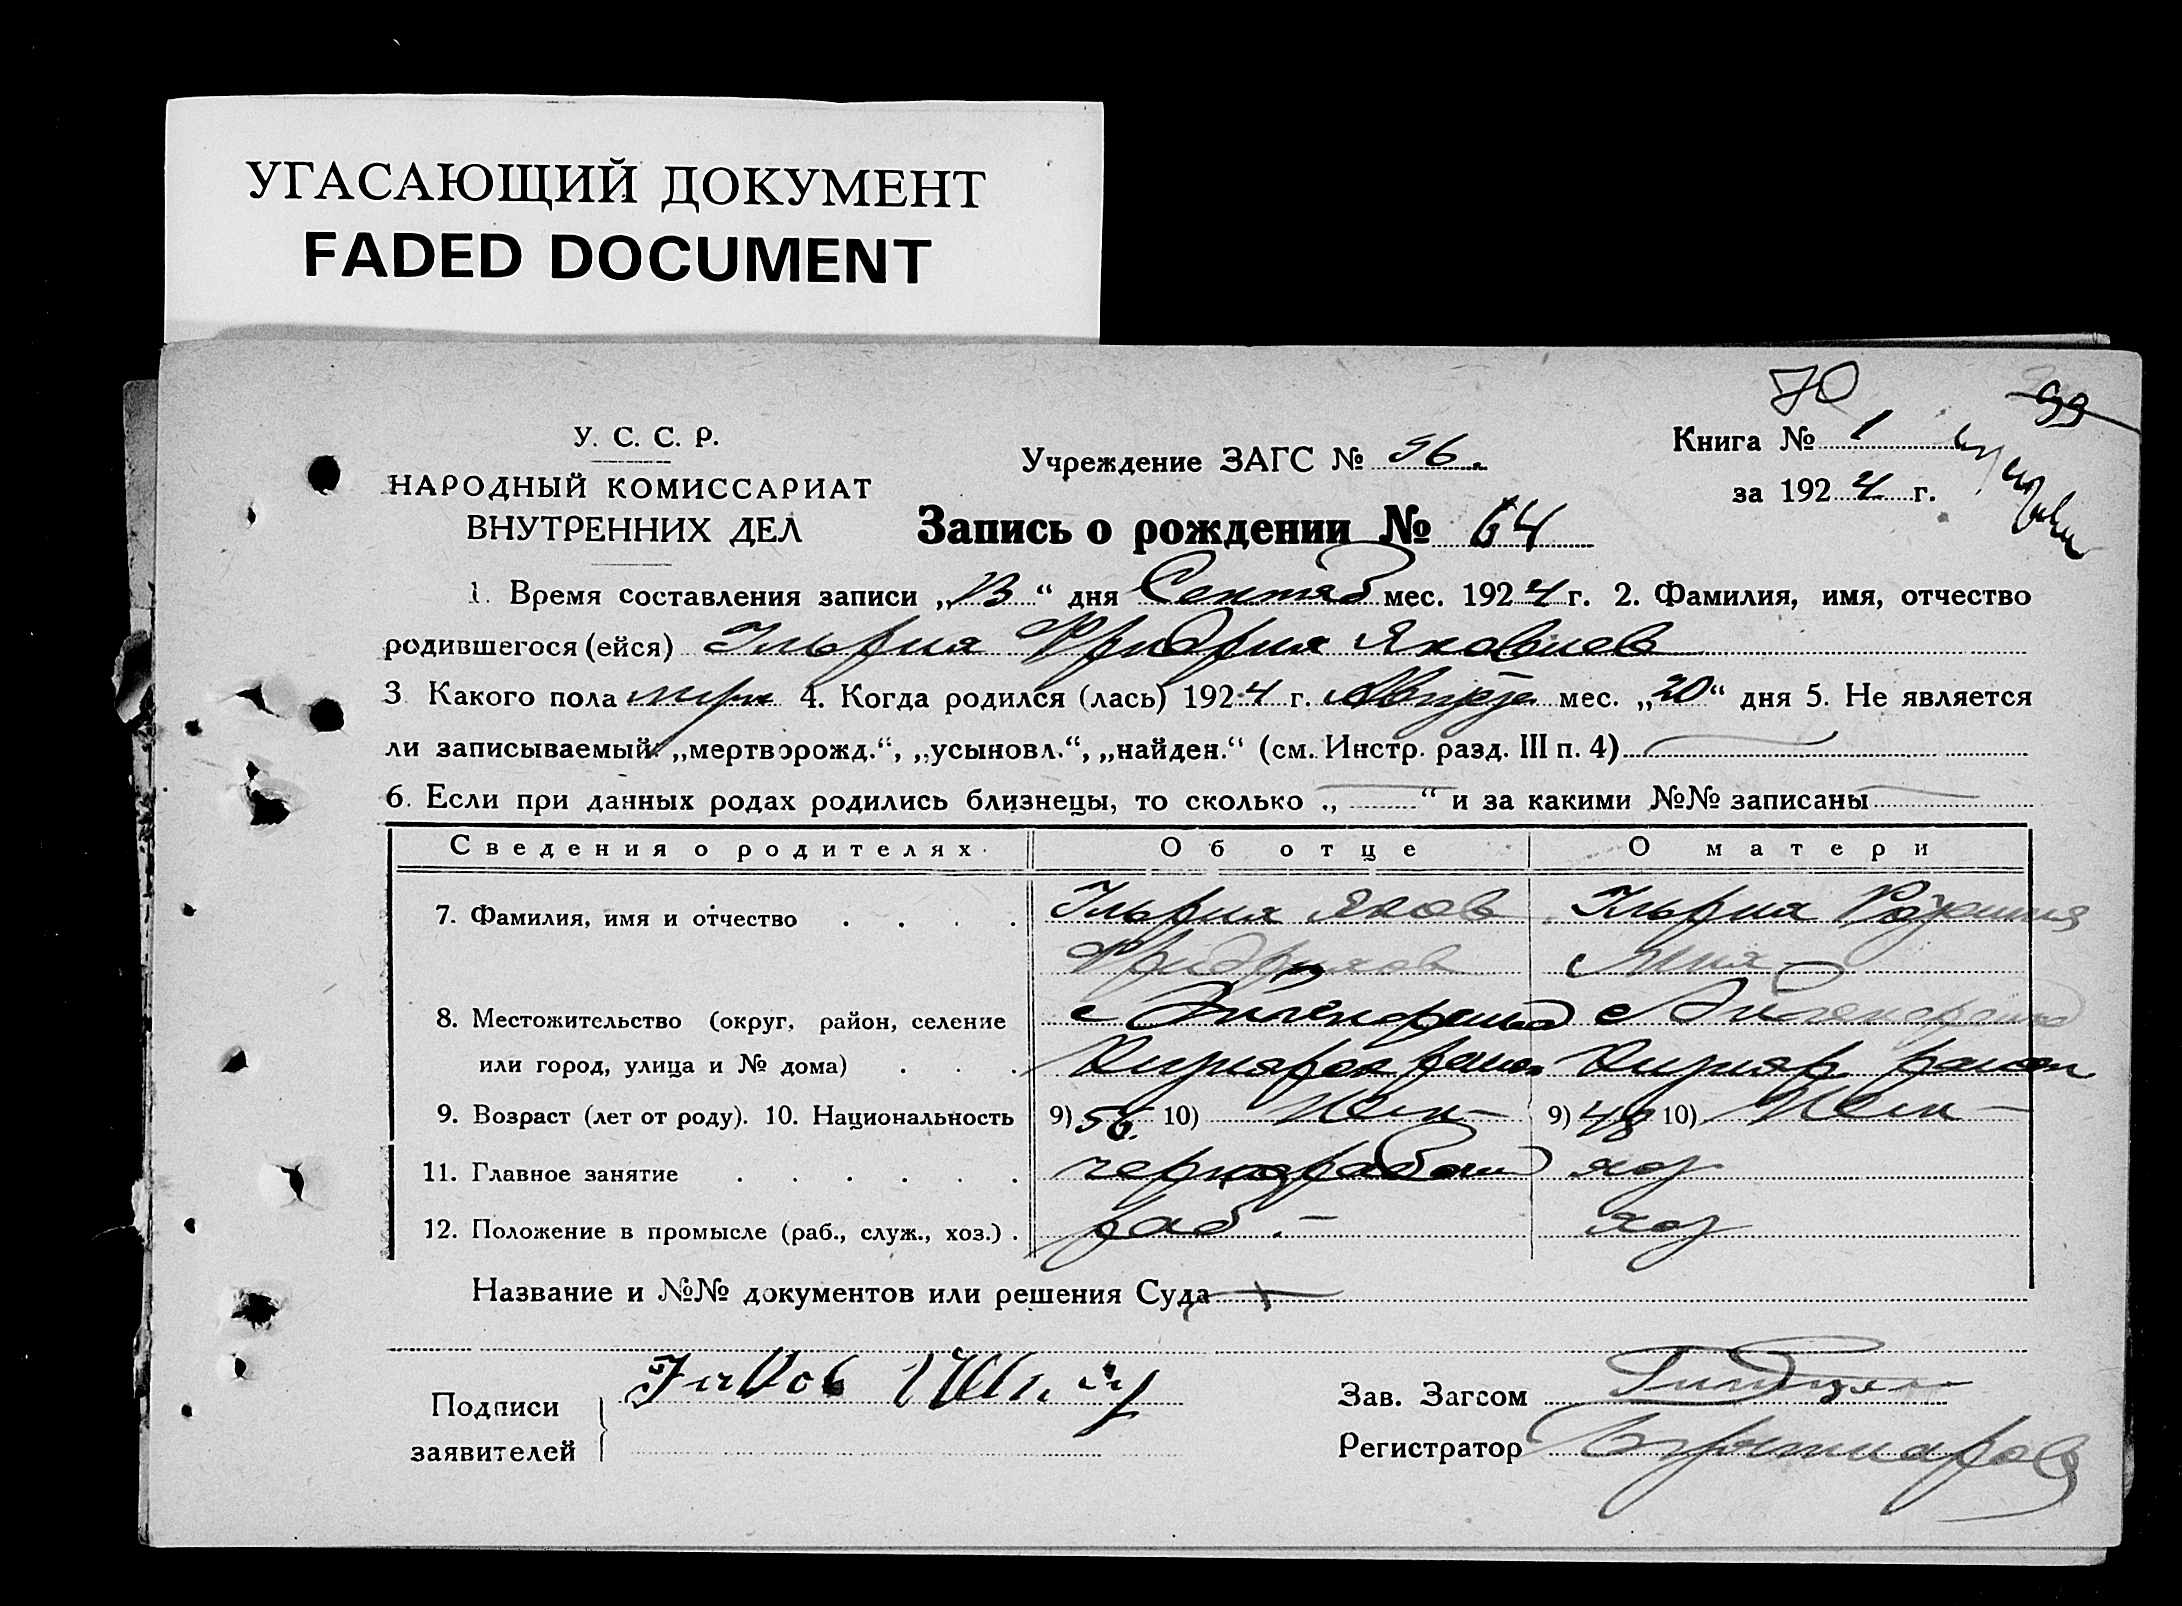 УГАСАЮЩИЙ ДОКУМЕНТ
FADED DOCUMENT
70
99
У. С. С. Р.
НАРОДНЫЙ КОМИССАРИАТ
ВНУТРЕННИХ ДЕЛ
Учреждение ЗАГС № 96.
Книга № 1
за 1924 г.
Запись о рождении № 64
1. Время составления записи „13“ дня Сентяб мес. 1924 г. 2. Фамилия, имя, отчество
родившегося (ейся) Ульрих Фридрих Яковлев
3. Какого пола муж 4. Когда родился (лась) 1924 г. Август мес. „20“ дня 5. Не является
ли записываемый „мертворожд.“, „усыновл.“, „найден.“ (см. Инстр. разд. III п. 4)
6. Если при данных родах родились близнецы, то сколько „ “ и за какими №№ записаны
Сведения о родителях. Об отце О матери
7. Фамилия, имя и отчество . . . . Ульрих Яков Ульрих
Фридрихов
8. Местожительство (округ, район, селение с с
или город, улица и № дома) . . . район район
9. Возраст (лет от роду). 10. Национальность 9) 56. 10) Нем- 9) 48 10) Нем-
11. Главное занятие . . . . . . чернорабоч хоз
12. Положение в промысле (раб., служ., хоз.) . раб.- хоз
Название и №№ документов или решения Суда
Подписи
заявителей
Зав. Загсом
Регистратор